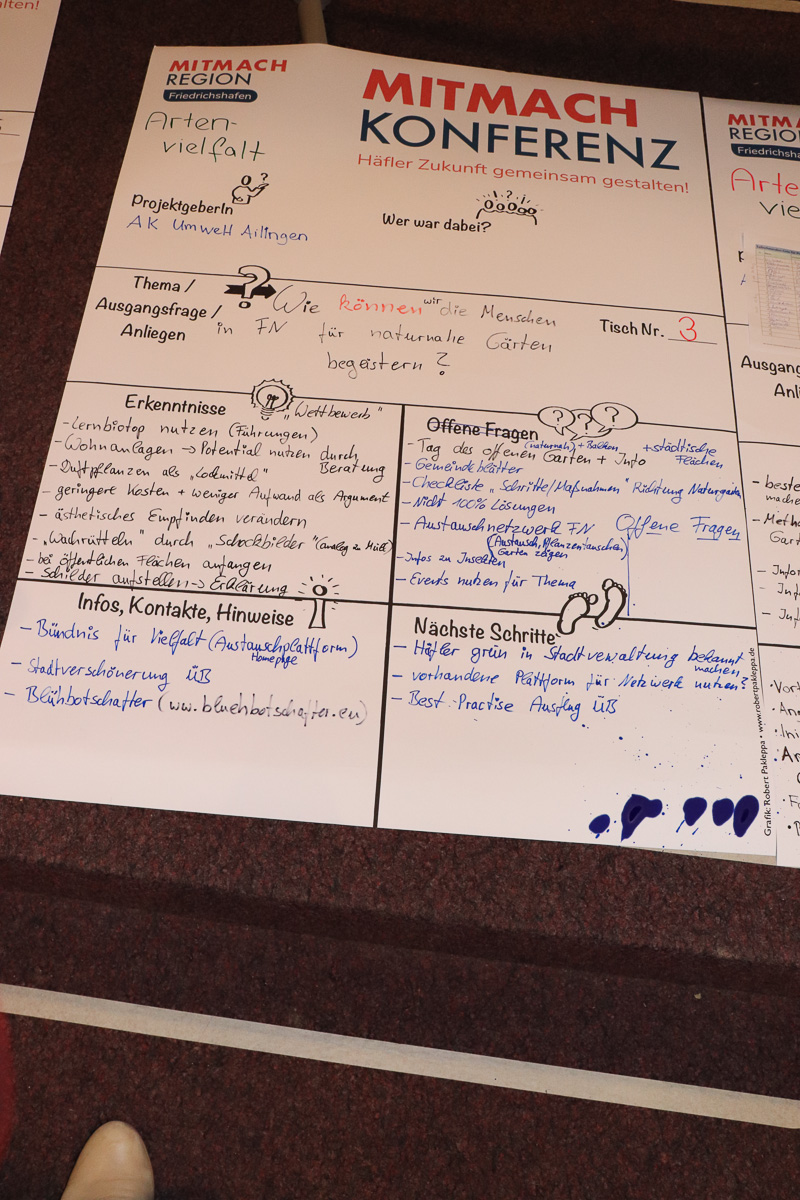 lten!
MITMACH
REGION
Friedrichshafen
Arten-
vielfalt
ProjektgeberIn
AK Umwelt Ailingen
MITMACH
KONFERENZ
Häfler Zukunft gemeinsam gestalten!
Wer war dabei?
Thema /
Ausgangsfrage /
Anliegen
Wie können wir die Menschen
in FN für naturnahe Gärten
begeistern?
Tisch Nr. 3
Erkenntnisse
"Wettbewerb"
- Lernbiotop nutzen (Führungen)
- Wohnanlagen → Potential nutzen durch
Beratung
- Duftpflanzen als "Lockmittel"
- geringere Kosten + weniger Aufwand als Argument
- ästhetisches Empfinden verändern
- "Wachrütteln" durch "Schockbilder" (analog zu Müll)
- bei öffentlichen Flächen anfangen
- Schilder aufstellen → Erklärung
Offene Fragen
- Tag des offenen (naturnah) Garten + Info
+ Balkon
+ städtische
Flächen
- Gemeindeblätter
- Checkliste "Schritte/Maßnahmen" Richtung Naturgarten
- Nicht 100% Lösungen
- Austauschnetzwerk FN
(Austausch, Pflanzen tauschen,
Garten zeigen)
Offene Fragen
- Infos zu Insekten
- Events nutzen für Thema
Infos, Kontakte, Hinweise
- Bündnis für Vielfalt (Austauschplattform)
Homepage
- Stadtverschönerung ÜB
- Blühbotschafter (ww.bluehbotschafter.eu)
Nächste Schritte
- Häfler grün in Stadtverwaltung bekannt
machen
- vorhandene Plattform für Netzwerk nutzen?
- Best-Practise Ausflug ÜB
Grafik: Robert Pakleppa • www.robertpakleppa.de
MITMA
REGIO
Friedrichsha
Arte
vie
Ausgang
Anl
- beste
machen
- Meth
Gart
- Infor
- Inf
- Inf
• Vort
• An
• Ini
Ar